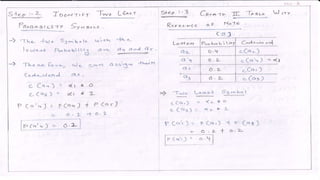 Step-1.2 Identify Two Least
Probability Symbols
→ The Two Symbols with the
lowest Probability are a₃ and a₅.
→ Therefore, we can assign their
Codeword as.
c(a₃) = α₁ * 0
c(a₅) = α₁ * 1
P(a'₄) = P(a₄) + P(a₅)
= 0.1 + 0.1
P(a'₄) = 0.2
Step: 1.3 Create II Table With
[a'₃]
Letter Probability Codeword
a₂ 0.4 c(a₂)
a'₄ 0.2 c(a'₄) = α₁
a₁ 0.2 c(a₁)
a₃ 0.2 c(a₃)
→ Two Least Symbol
c(a₁) = α₂ * 0
c(a₃) = α₂ * 1
= 0.2 + 0.2